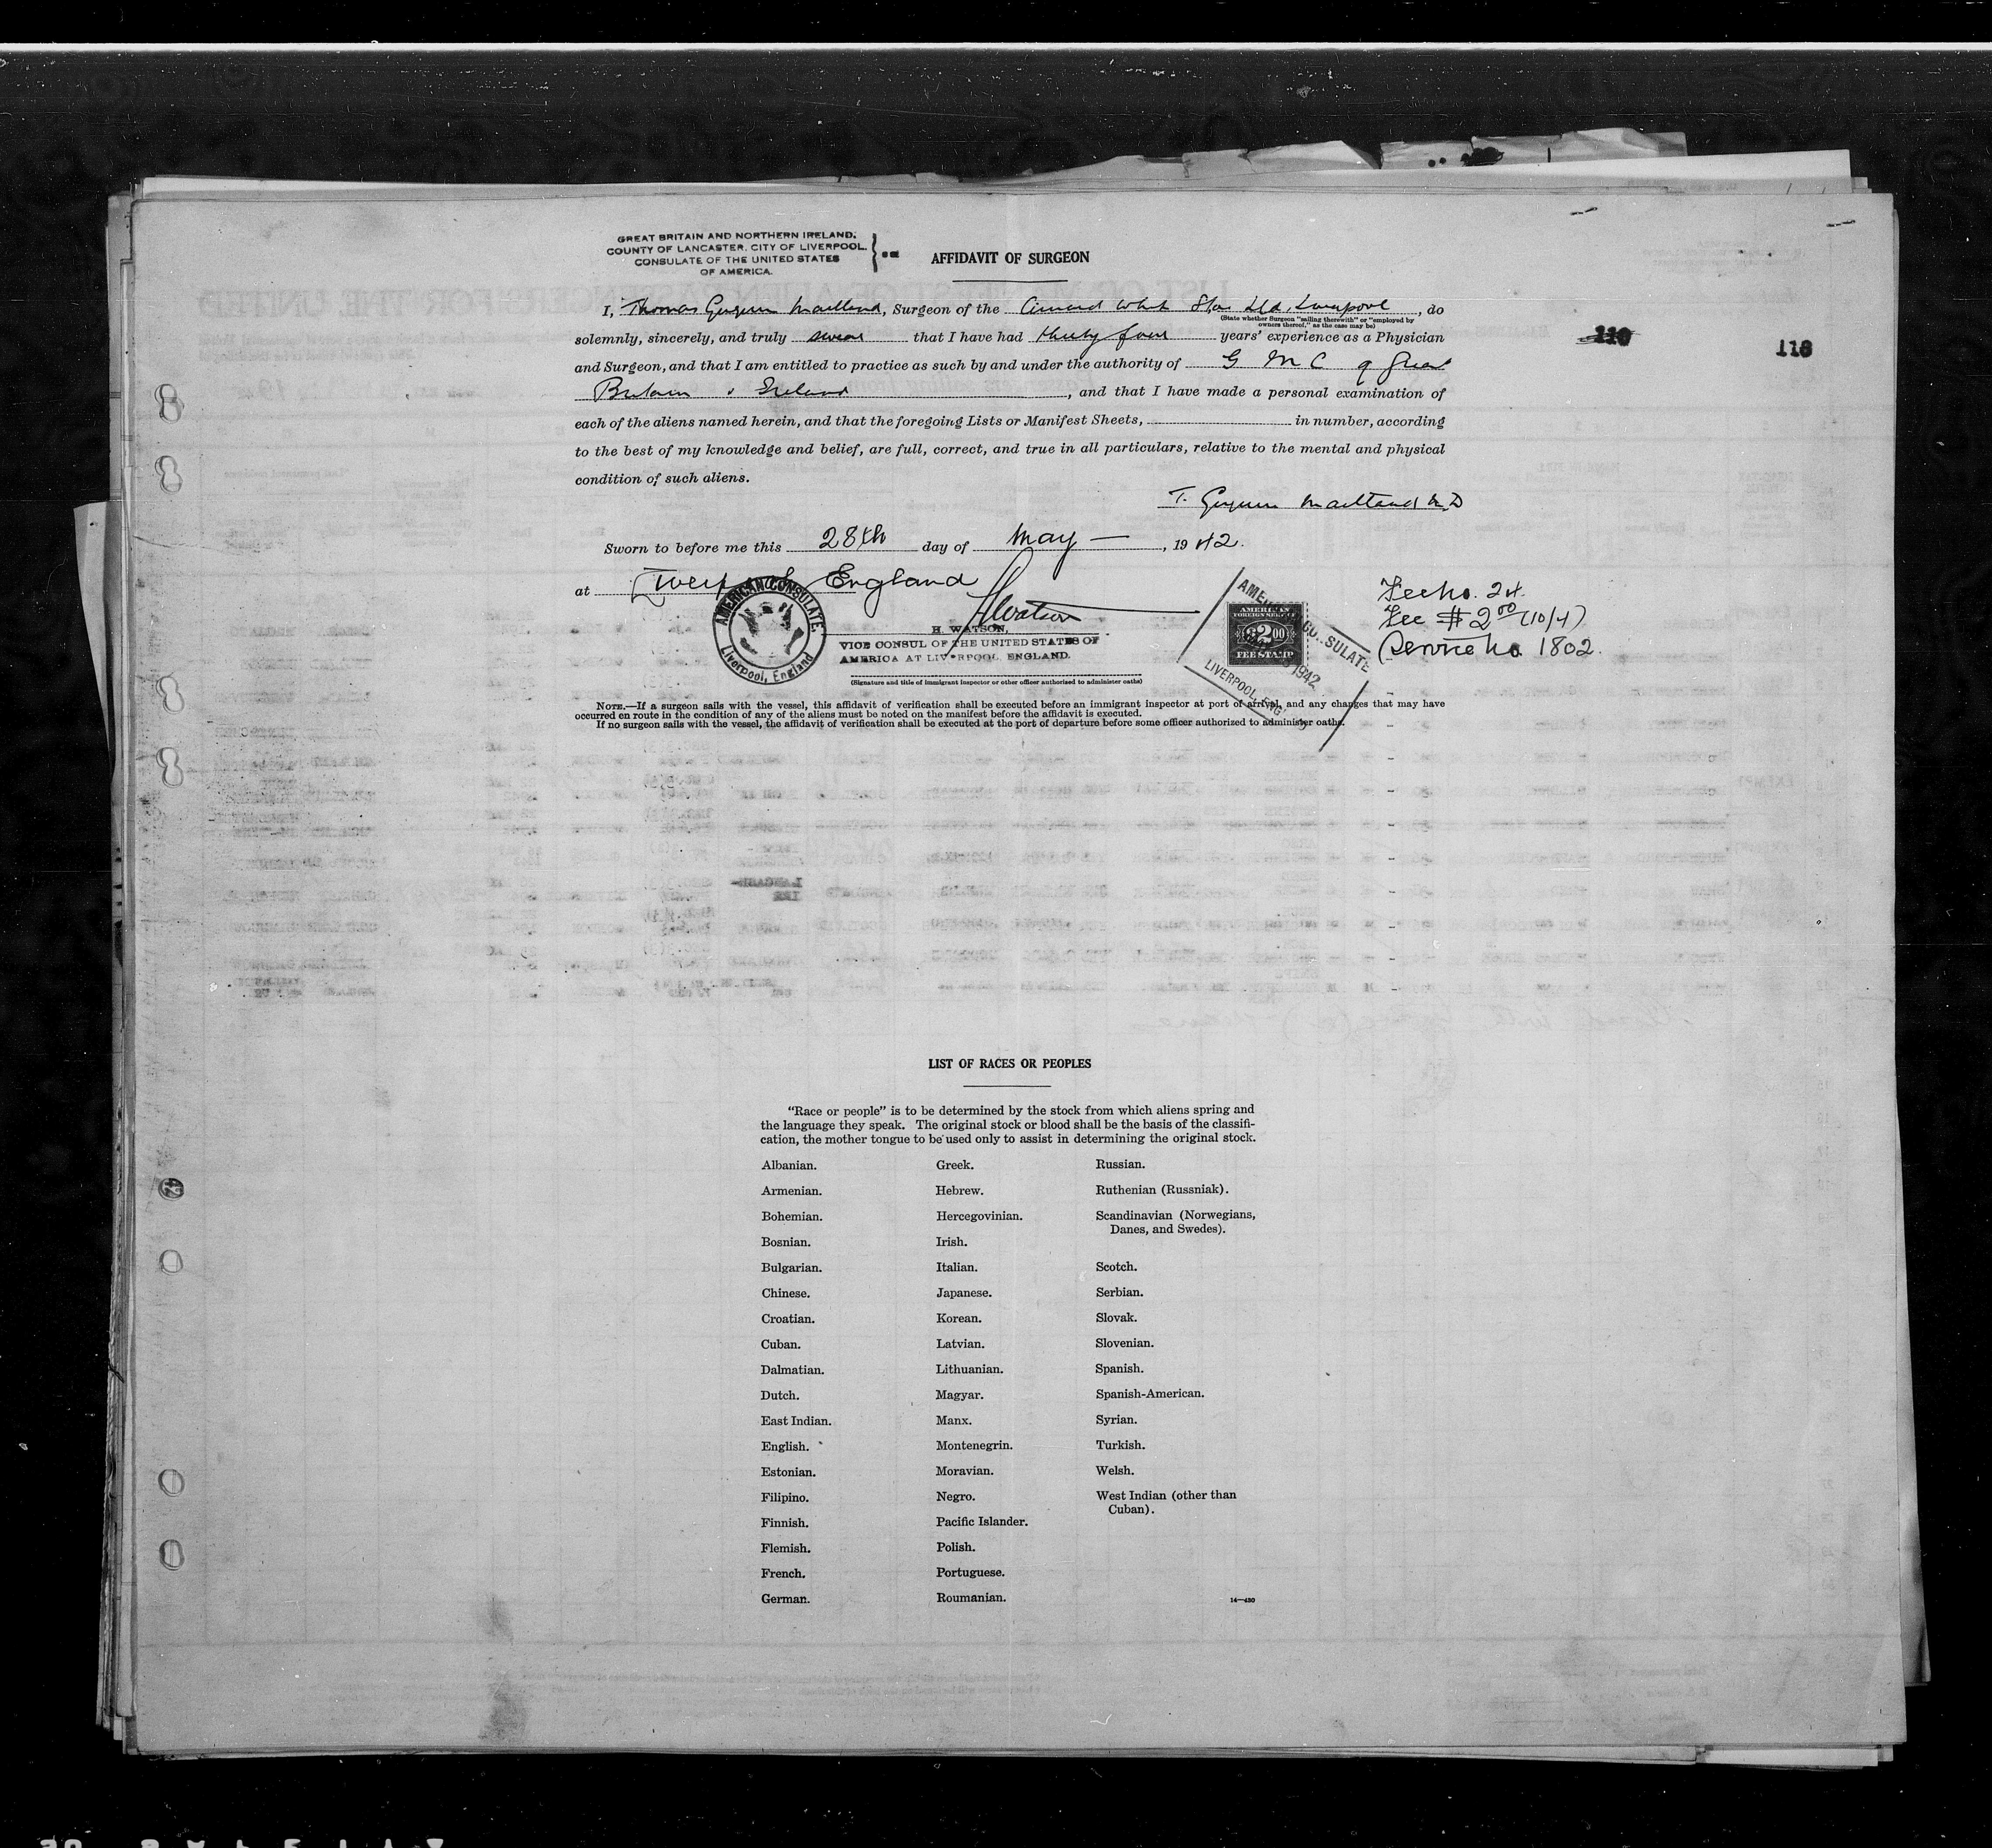 GREAT BRITAIN AND NORTHERN IRELAND,
COUNTY OF LANCASTER, CITY OF LIVERPOOL.
CONSULATE OF THE UNITED STATES
OF AMERICA.
AFFIDAVIT OF SURGEON
I, Thomas Maitland, Surgeon of the Cunard White Star Ltd, Liverpool, do
(State whether Surgeon "sailing therewith" or "employed by
owners thereof," as the case may be)
solemnly, sincerely, and truly swear that I have had thirty four years' experience as a Physician
and Surgeon, and that I am entitled to practice as such by and under the authority of G M C of Great
Britain & Ireland, and that I have made a personal examination of
each of the aliens named herein, and that the foregoing Lists or Manifest Sheets, in number, according
to the best of my knowledge and belief, are full, correct, and true in all particulars, relative to the mental and physical
condition of such aliens.
110
118
T. Maitland M.D
Sworn to before me this 28th day of May, 1942.
at Liverpool, England
HWatson
AMERICAN CONSULATE
Liverpool, England
H. WATSON,
VICE CONSUL OF THE UNITED STATES OF
AMERICA AT LIVERPOOL ENGLAND.
(Signature and title of immigrant inspector or other officer authorized to administer oaths)
AMERICAN
FOREIGN SERVICE
$2.00
FEE STAMP
AMERICAN CONSULATE
1942
LIVERPOOL, ENG
Fee no. 24.
Fee $2.00 (10/4)
Service no. 1802.
NOTE.—If a surgeon sails with the vessel, this affidavit of verification shall be executed before an immigrant inspector at port of arrival, and any changes that may have
occurred en route in the condition of any of the aliens must be noted on the manifest before the affidavit is executed.
If no surgeon sails with the vessel, the affidavit of verification shall be executed at the port of departure before some officer authorized to administer oaths.
LIST OF RACES OR PEOPLES
"Race or people" is to be determined by the stock from which aliens spring and
the language they speak. The original stock or blood shall be the basis of the classifi-
cation, the mother tongue to be used only to assist in determining the original stock.
Albanian.
Armenian.
Bohemian.
Bosnian.
Bulgarian.
Chinese.
Croatian.
Cuban.
Dalmatian.
Dutch.
East Indian.
English.
Estonian.
Filipino.
Finnish.
Flemish.
French.
German.
Greek.
Hebrew.
Hercegovinian.
Irish.
Italian.
Japanese.
Korean.
Latvian.
Lithuanian.
Magyar.
Manx.
Montenegrin.
Moravian.
Negro.
Pacific Islander.
Polish.
Portuguese.
Roumanian.
Russian.
Ruthenian (Russniak).
Scandinavian (Norwegians,
Danes, and Swedes).
Scotch.
Serbian.
Slovak.
Slovenian.
Spanish.
Spanish-American.
Syrian.
Turkish.
Welsh.
West Indian (other than
Cuban).
14—430